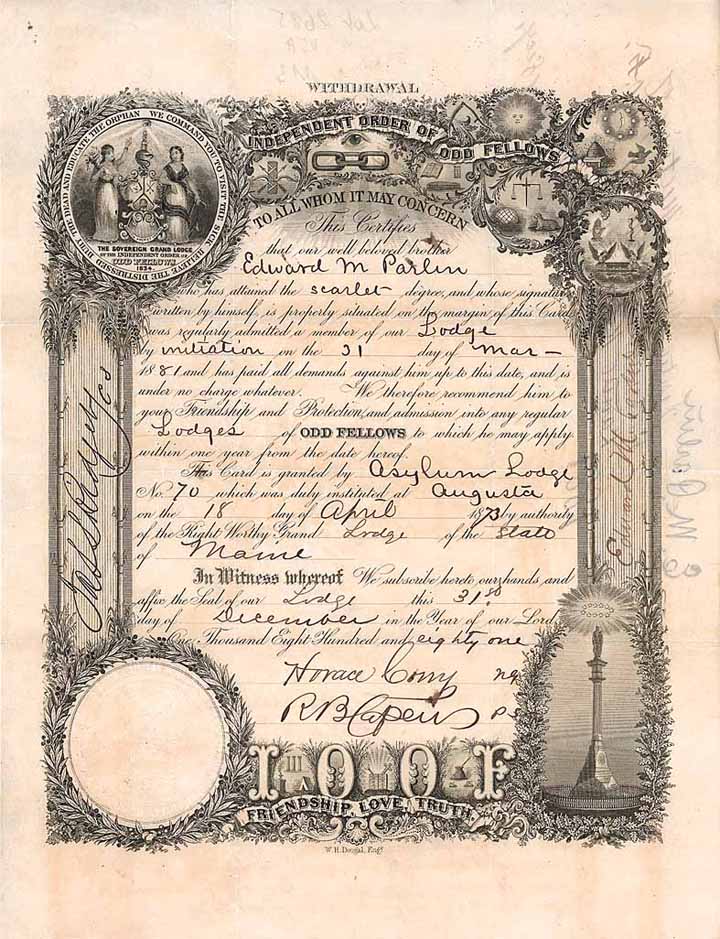 WITHDRAWAL
INDEPENDENT ORDER OF
ODD FELLOWS
WE COMMAND YOU TO VISIT THE SICK RELIEVE THE DISTRESSED BURY THE DEAD AND EDUCATE THE ORPHAN
THE SOVEREIGN GRAND LODGE
OF THE INDEPENDENT ORDER OF
ODD FELLOWS
1834
TO ALL WHOM IT MAY CONCERN
This Certifies
that our well beloved brother
Edward M Parlin
who has attained the scarlet degree, and whose signature
written by himself, is properly situated on the margin of this Card
was regularly admitted a member of our Lodge
by initiation on the 31 day of Mar –
1881 and has paid all demands against him up to this date, and is
under no charge whatever. We therefore recommend him to
your Friendship and Protection, and admission into any regular
Lodges of ODD FELLOWS to which he may apply
within one year from the date hereof.
This Card is granted by Asylum Lodge
No. 70 which was duly instituted at Augusta
on the 18 day of April 1873 by authority
of the Right Worthy Grand Lodge of the State
of Maine
In Witness whereof We subscribe hereto, our hands, and
affix the Seal of our Lodge this 31st
day of December in the Year of our Lord,
One Thousand Eight Hundred and eighty one
Horace Cony NG
R B Capen
Edward M
I O O F
FRIENDSHIP, LOVE, TRUTH
W. H. Dougal, Engr